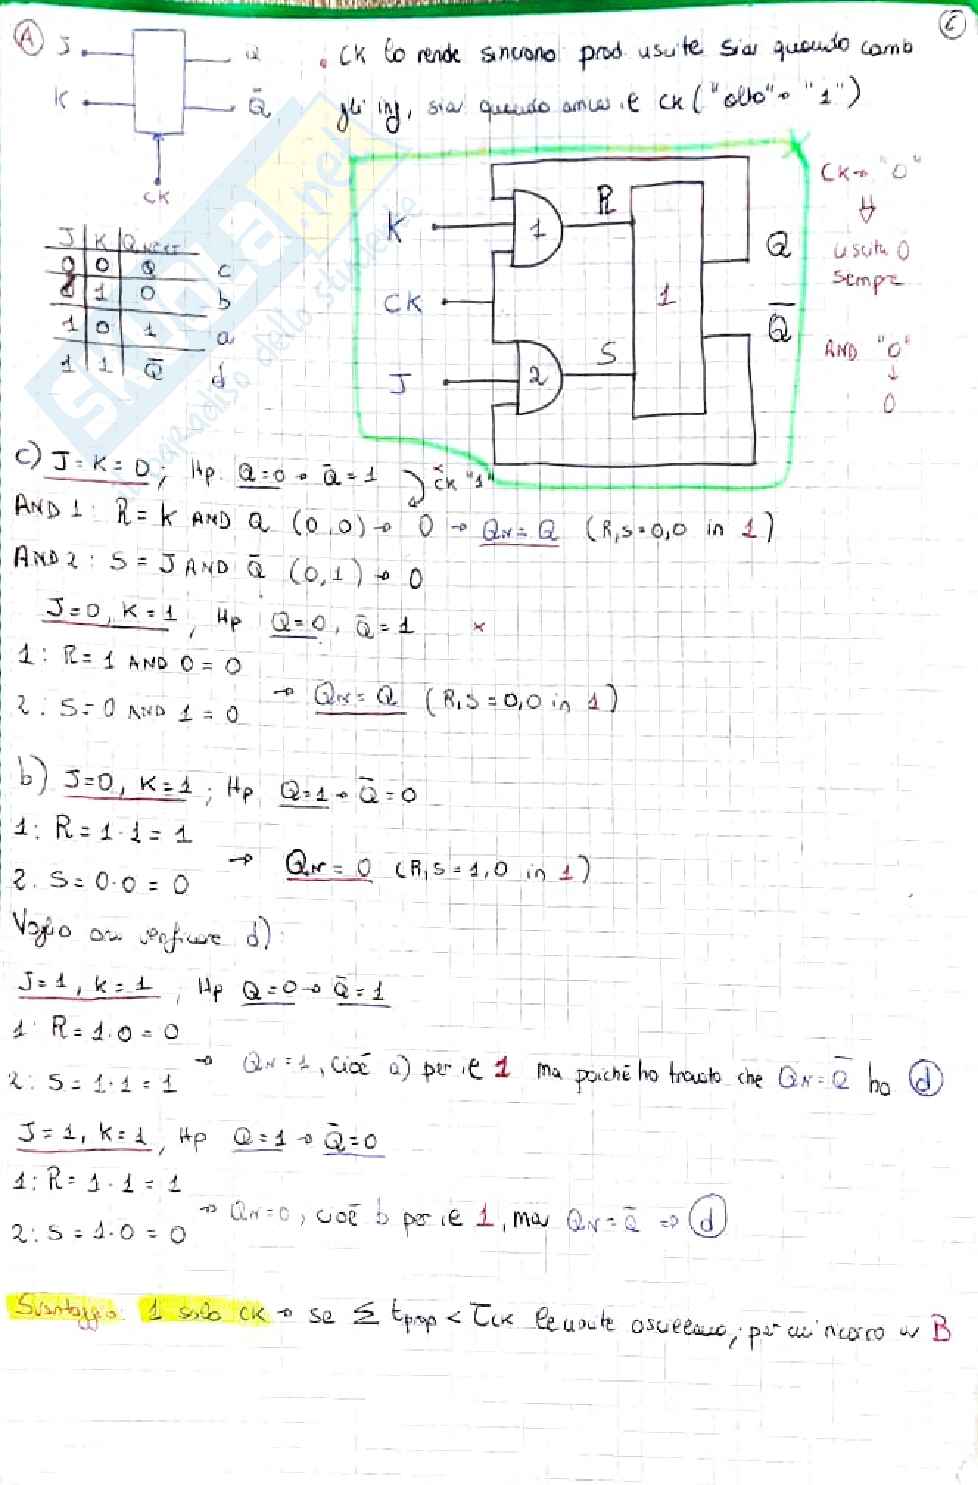 A J K Q Q̄ CK
• CK lo rende sincrono: prod. uscite sia quando camb
gli ing, sia quando arriva il CK ("alto" → "1")
6
J K Q NEXT
0 0 Q c
0 1 0 b
1 0 1 a
1 1 Q̄ d
K CK J 1 2 R S 1 Q Q̄
CK → "0"
⇓
uscita 0
sempre
AND "0"
↓
0
SKUOLA.net
paradiso dello studente
c) J=K=0; Hp. Q=0 → Q̄=1 CK "1"
AND 1: R = K AND Q (0,0) → 0 → QN = Q (R,S=0,0 in 1)
AND 2: S = J AND Q̄ (0,1) → 0
J=0, K=1, Hp Q=0, Q̄=1 ×
1: R = 1 AND 0 = 0
→ QN = Q (R,S=0,0 in 1)
2: S = 0 AND 1 = 0
b) J=0, K=1; Hp Q=1 → Q̄=0
1: R = 1·1 = 1
→ QN = 0 (R,S=1,0 in 1)
2. S = 0·0 = 0
Voglio ora verificare d):
J=1, K=1, Hp Q=0 → Q̄=1
1: R = 1·0 = 0
→ QN=1, cioè a) per il 1 ma poiché ho trovato che QN=Q̄ ho d
2: S = 1·1 = 1
J=1, K=1, Hp Q=1 → Q̄=0
1: R = 1·1 = 1
→ QN=0, cioè b per il 1, ma QN=Q̄ ⇒ d
2: S = 1·0 = 0
Svantaggio: 1 solo CK → se Σ tprop < TCK le uscite oscillano, per cui ricorro a B